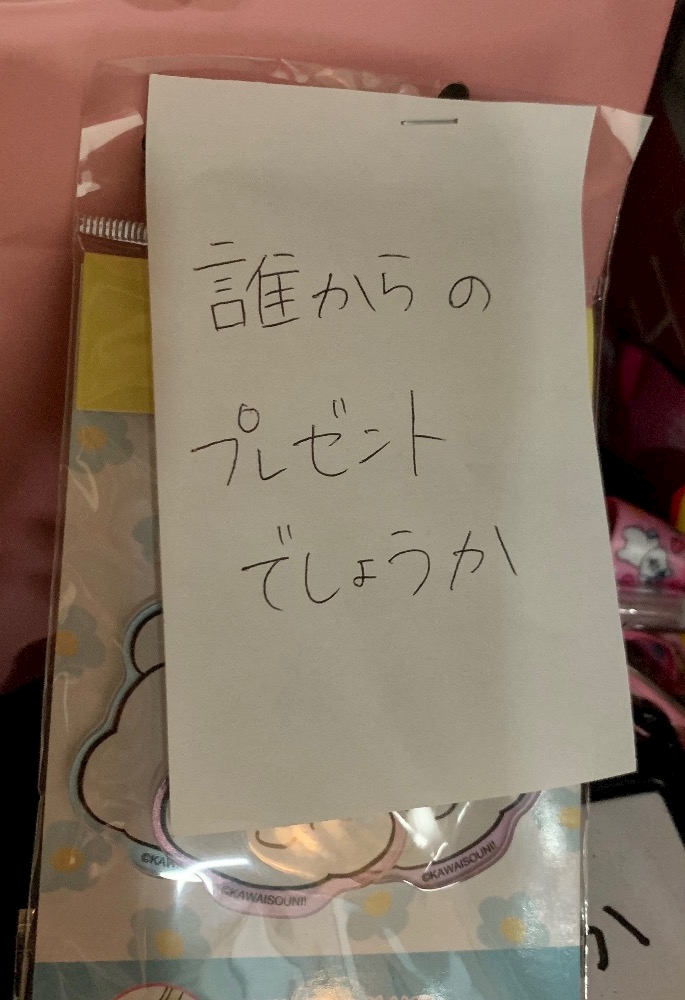 誰からの
プレゼント
でしょうか
©KAWAISOUNI!
©KAWAISOUNI!
か